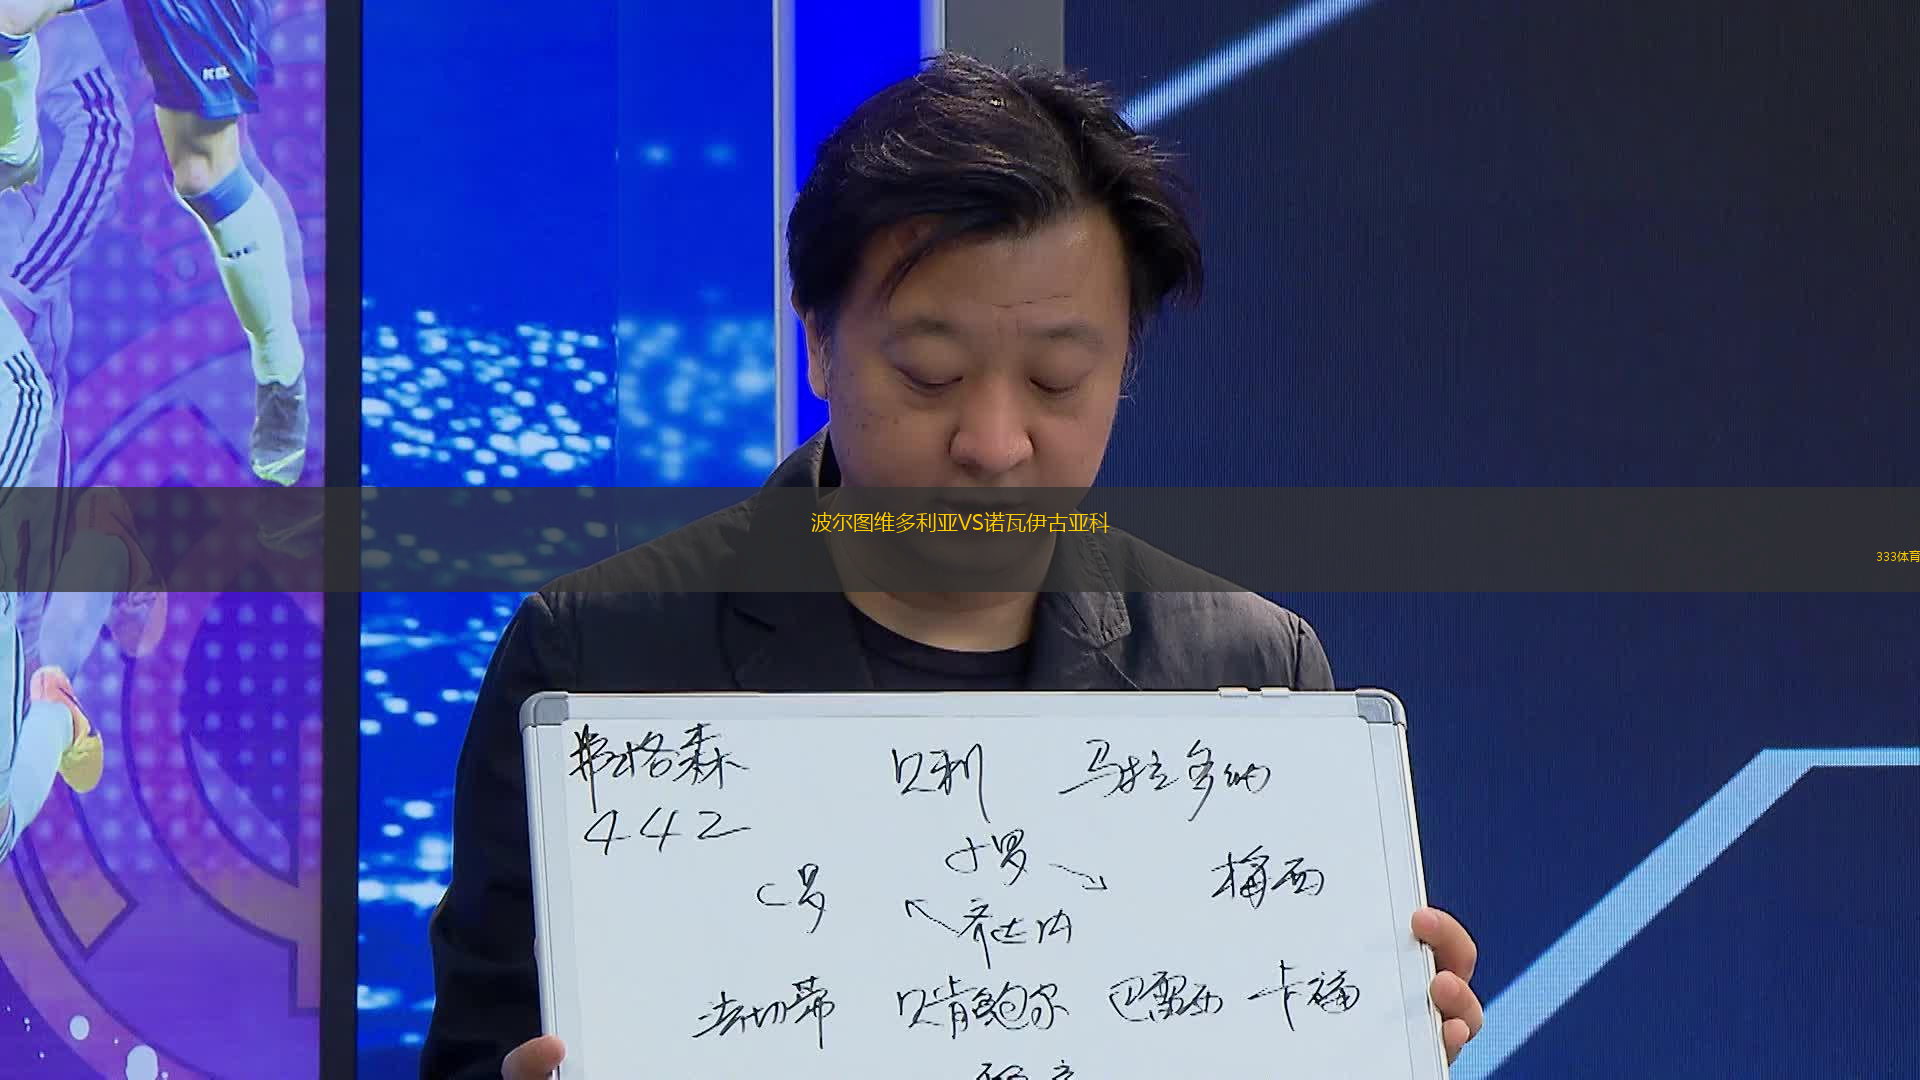 波尔图维多利亚VS诺瓦伊古亚科
333体育
弗格森 贝利 马拉多纳
442
小罗
C罗 梅西
齐达内
法切蒂 贝肯鲍尔 巴雷西 卡福